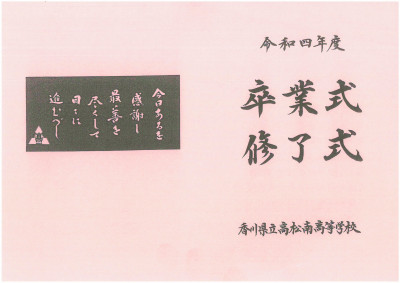 令和四年度
卒業式
修了式
香川県立高松南高等学校
今日あるを
感謝し
最善を
尽くして
日々に
進むべし